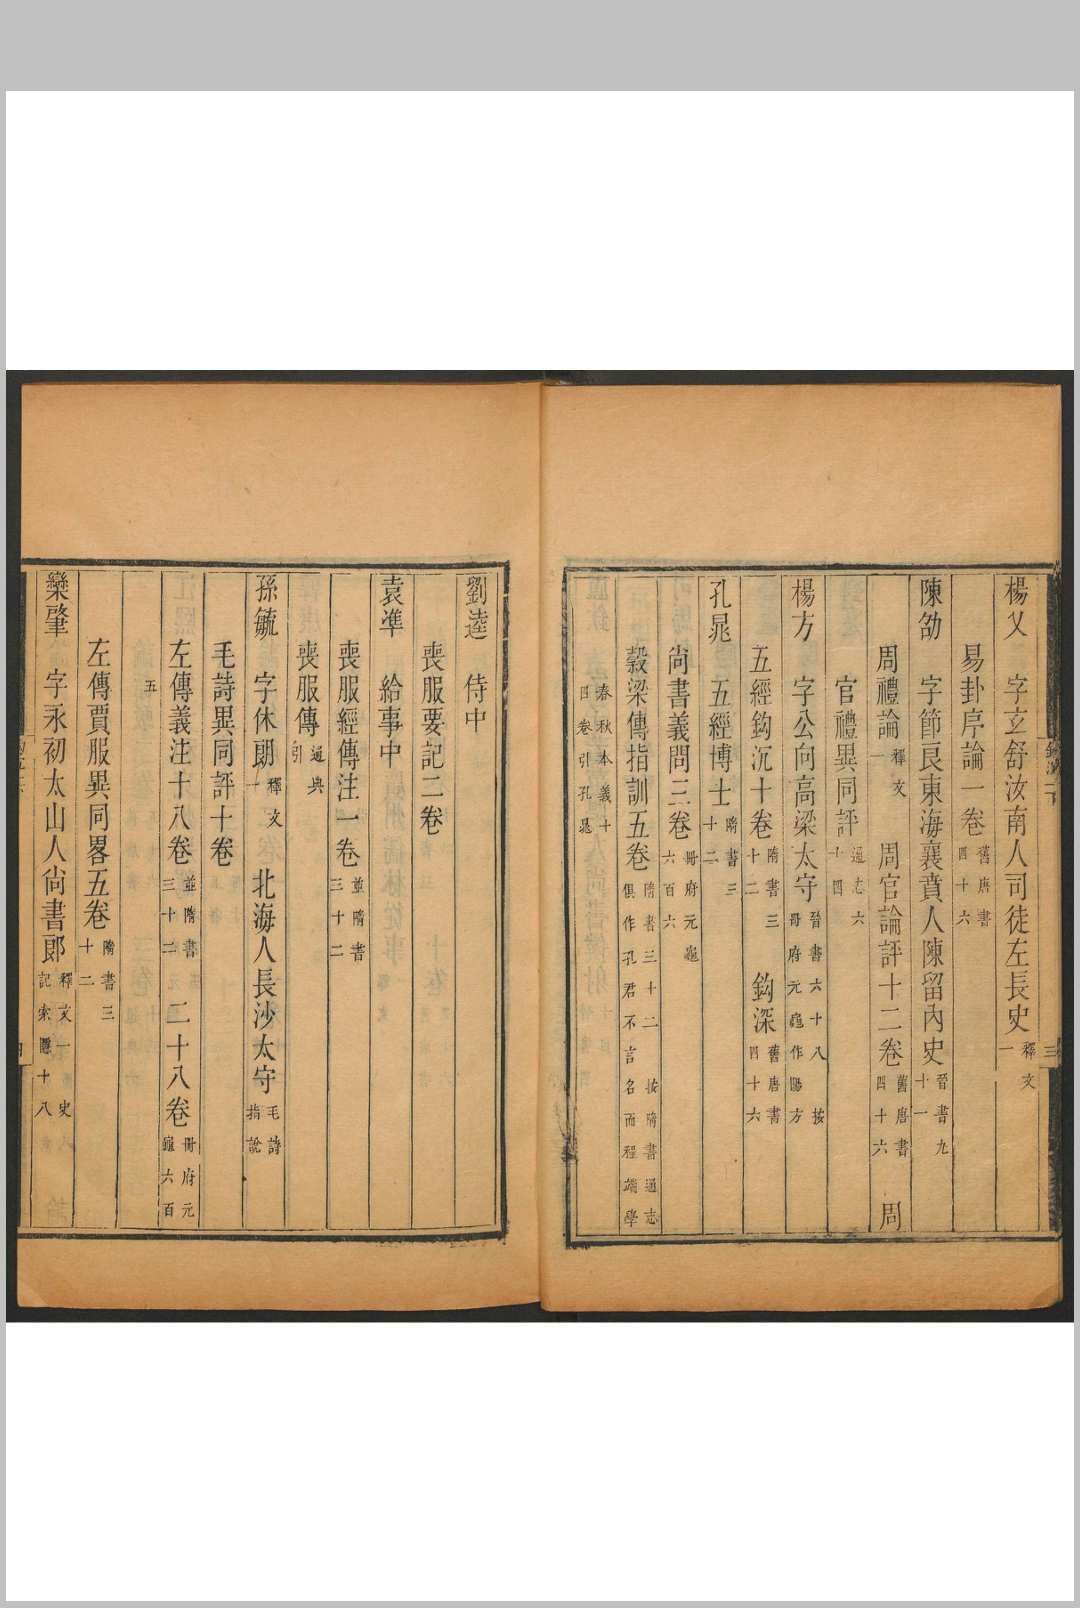 楊乂 字玄舒汝南人司徒左長史釋文一
易卦序論一卷舊唐書四十六
陳劭 字節良東海襄賁人陳留內史晉書九十一
周禮論釋文一 周官論評十二卷舊唐書四十六 周
官禮異同評通志六十四
楊方 字公向高梁太守晉書六十八 按冊府元龜作陽方
五經鈎沉十卷隋書三十二 鈎深舊唐書四十六
孔晁 五經博士隋書三十二
尚書義問三卷冊府元龜六百六
穀梁傳指訓五卷隋書三十二 按隋書通志俱作孔君不言名而程端學
春秋本義十四卷引孔晁
劉逵 侍中
喪服要記二卷
袁準 給事中
喪服經傳注一卷並隋書三十二
喪服傳通典引
孫毓 字休朗釋文一 北海人長沙太守毛詩指說
毛詩異同評十卷
左傳義注十八卷並隋書三十二 二十八卷冊府元龜六百
五
左傳賈服異同畧五卷隋書三十二
欒肇 字永初太山人尚書郎釋文一 史記索隱十八